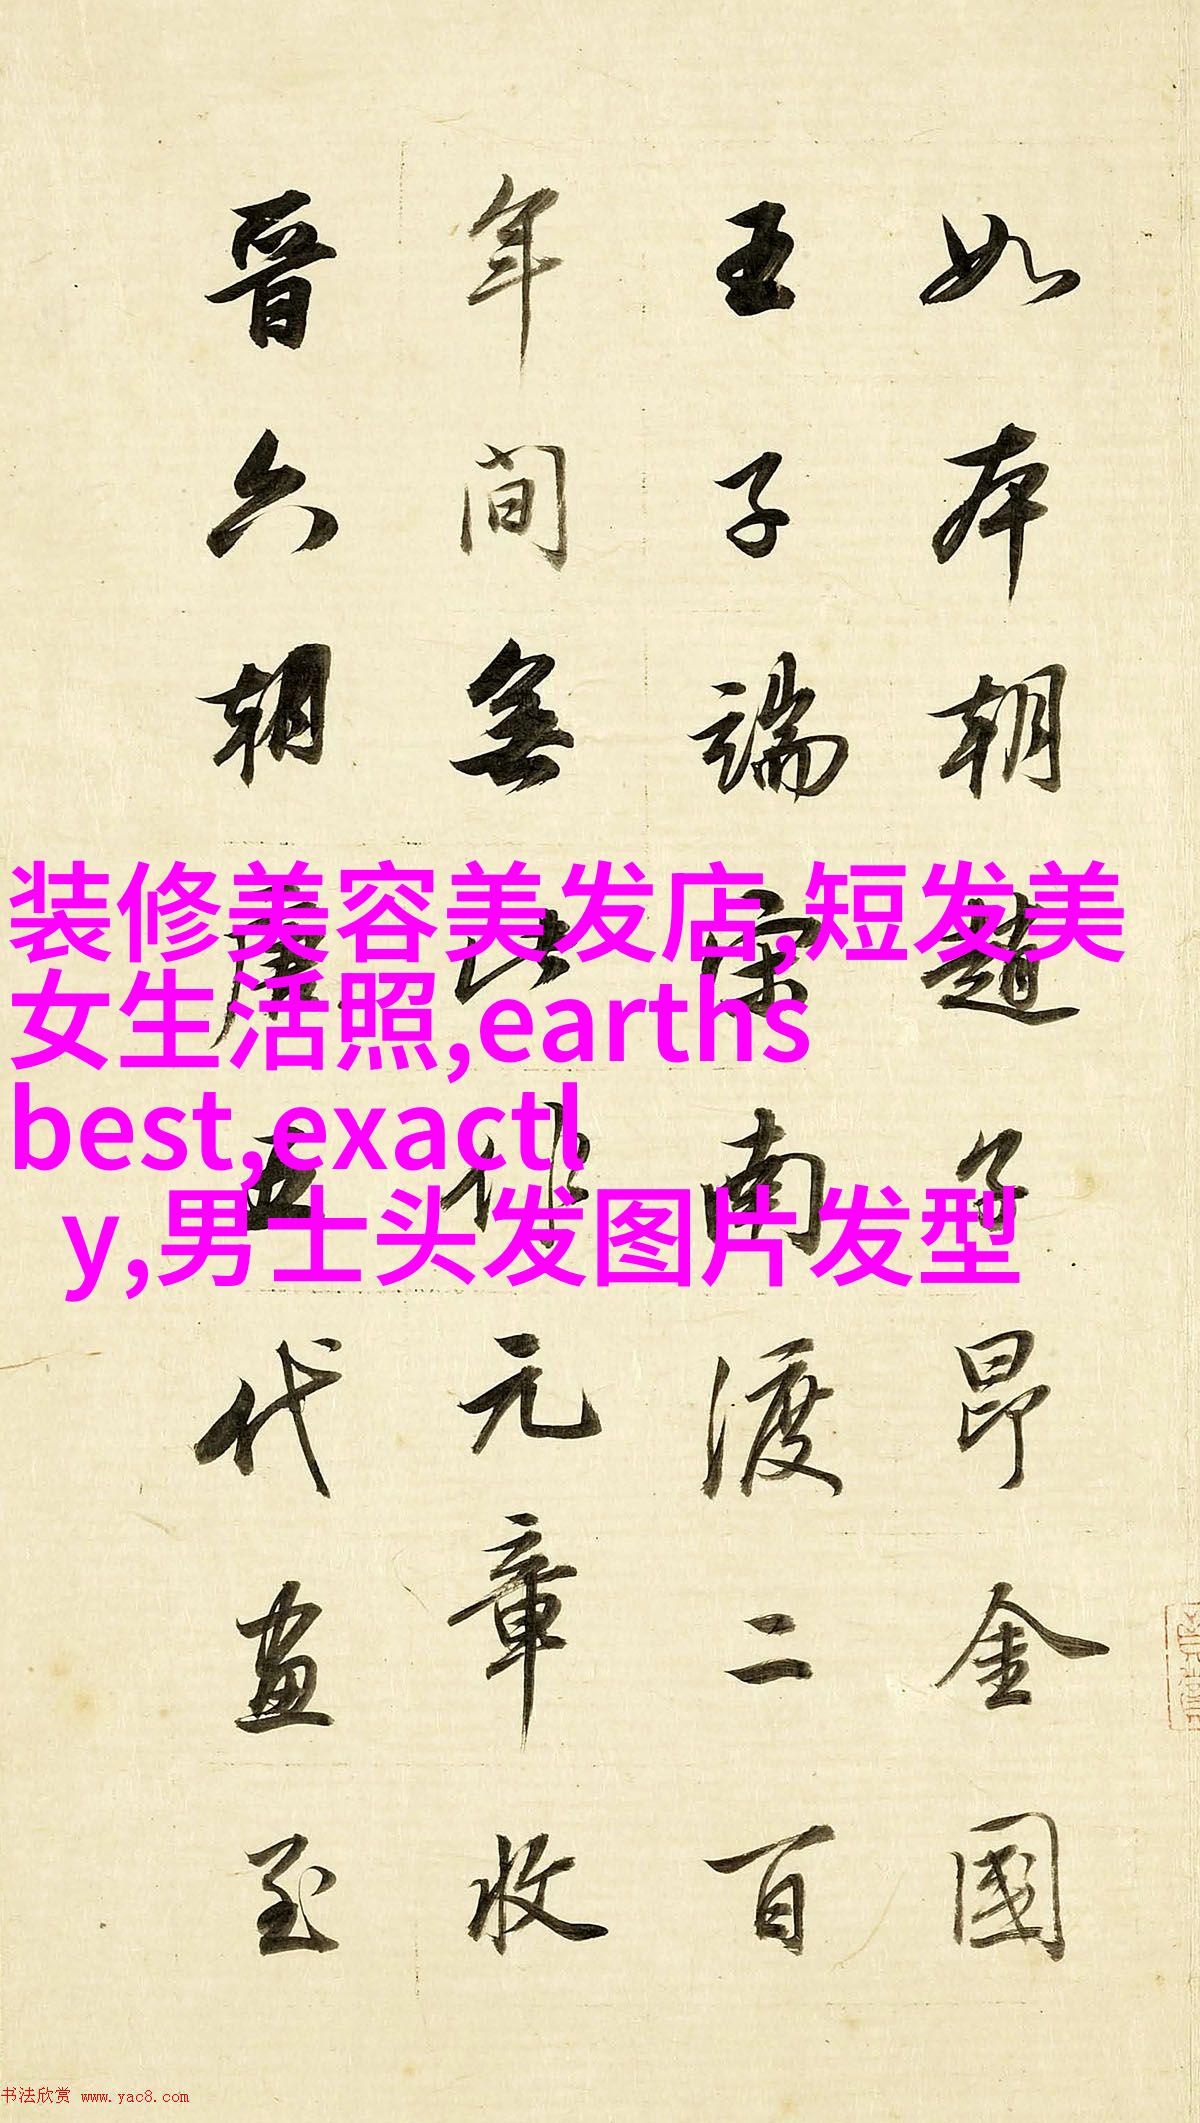 如本朝趙子昂金國
王子端宋南渡二百
年間無此作元章收
晉六朝唐五代畫至
装修美容美发店,短发美
女生活照,earths
best,exactl
y,男士头发图片发型
书法欣赏 www.yac8.com